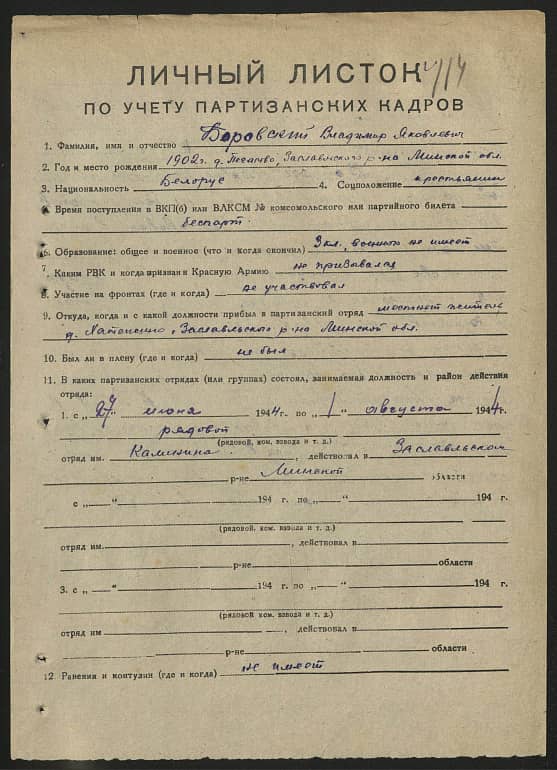 ЛИЧНЫЙ ЛИСТОК
ПО УЧЕТУ ПАРТИЗАНСКИХ КАДРОВ
1. Фамилия, имя и отчество Боровский Владимир Яковлевич
2. Год и место рождения 1902 г. д. Заславльского р-на Минской обл.
3. Национальность Белорус 4. Соцположение крестьянин
Время поступления в ВКП(б) или ВЛКСМ № комсомольского или партийного билета
беспарт.
6. Образование: общее и военное (что и когда окончил) 3 кл., военного не имеет
7. Каким РВК и когда призван в Красную Армию не призывался
8. Участие на фронтах (где и когда) не участвовал
9. Откуда, когда и с какой должности прибыл в партизанский отряд местный житель
д. Заславльского р-на Минской обл.
10. Был ли в плену (где и когда) не был
11. В каких партизанских отрядах (или группах) состоял, занимаемая должность и район действия
отряда:
1. с „27 июня 1944 г. по „1“ августа 1944 г.
рядовой
(рядовой, ком. взвода и т. д.)
отряд им. Калинина, действовал в Заславльском
р-не Минской области
с „ “ 194 г. по „ “ 194 г.
(рядовой, ком. взвода и т. д.)
отряд им. , действовал в
р-не области
3. с „ “ 194 г. по „ “ 194 г.
(рядовой, ком. взвода и т. д.)
отряд им , действовал в
р-не области
12. Ранения и контузии (где и когда) не имеет